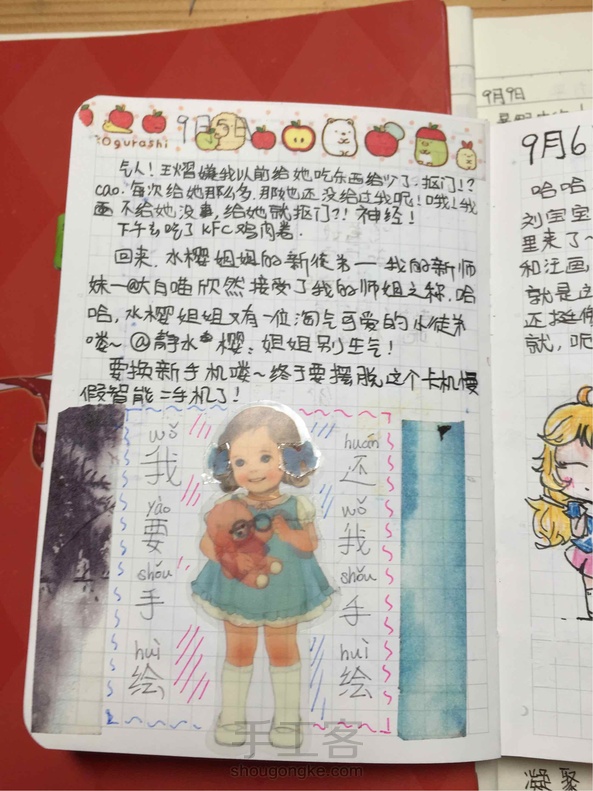 9月5日
ogurashi
气人！王熠嫌我以前给她吃东西给少了.抠门！？
cao.每次给她那么多.那她还没给过我呢！哦！我
不给她没事,给她就抠门？！神经！
下午去吃了KFC鸡肉卷.
回来.水樱姐姐的新徒弟—我的新师
妹—@大白喵欣然接受了我的师姐之称,哈
哈,水樱姐姐又有一位淘气可爱的小徒弟
喽~ @静水樱:姐姐别生气！
要换新手机喽~终于要摆脱这个卡机慢
假智能二手机了！
wǒ
我
yào
要
shǒu
手
huì
绘
huán
还
wǒ
我
shǒu
手
huì
绘
手工客
shougongke.com
9月9日
9月6
哈哈
刘宝宝
里来了~
和汪画
就是这
还挺
就,呃
凝聚